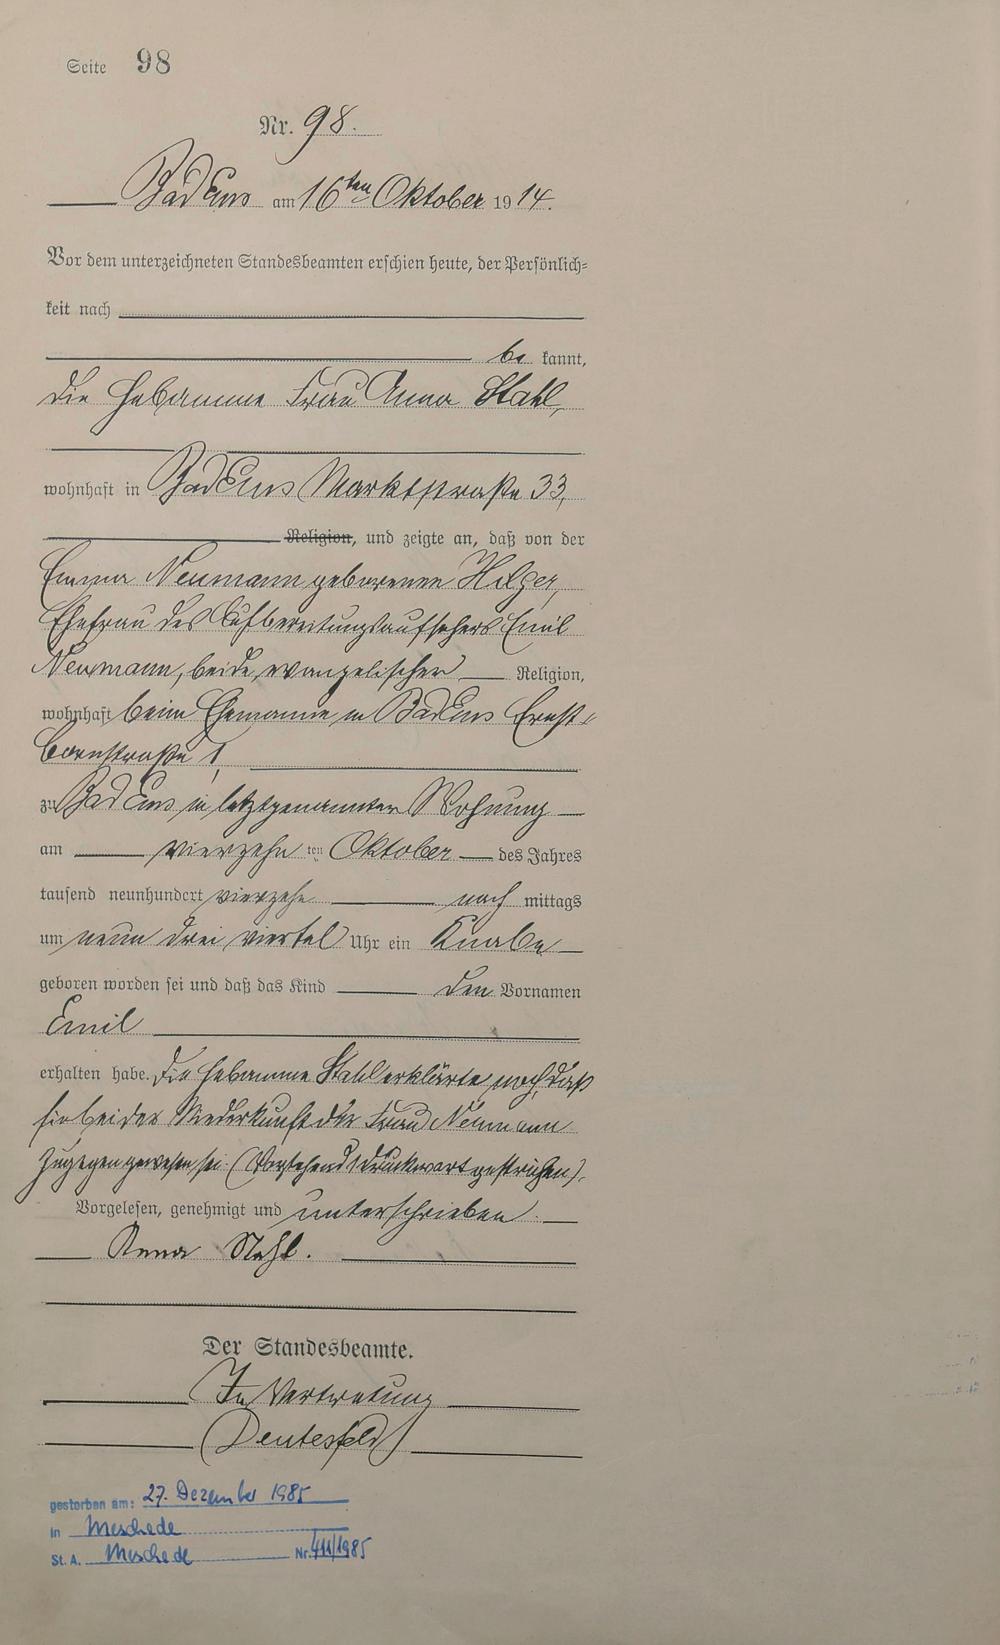 Seite 98
Nr. 98.
Bad Ems am 16ten Oktober 1914.
Vor dem unterzeichneten Standesbeamten erschien heute, der Persönlich=
keit nach
be kannt,
die Hebamme Frau Anna Stahl,
wohnhaft in Bad Ems Marktstraße 33,
Religion, und zeigte an, daß von der
Emma Neumann geborenen Hilger,
Ehefrau des Aufbereitungsaufsehers Emil
Neumann, beide evangelischer Religion,
wohnhaft beim Ehemanne in Bad Ems Ernst=
bornstraße 1
zu Bad Ems in letztgenannter Wohnung
am vierzehn ten Oktober des Jahres
tausend neunhundert vierzehn nach mittags
um neun drei viertel Uhr ein Knabe
geboren worden sei und daß das Kind den Vornamen
Emil
erhalten habe. Die Hebamme Stahl erklärte noch, daß
sie bei der Niederkunft der Frau Neumann
zugegen gewesen sei. (Vorstehend 1 Druckwort gestrichen).
Vorgelesen, genehmigt und unterschrieben.
Anna Stahl.
Der Standesbeamte.
In Vertretung
gestorben am: 27. Dezember 1985
in Meschede
St. A. Meschede Nr. 411/1985